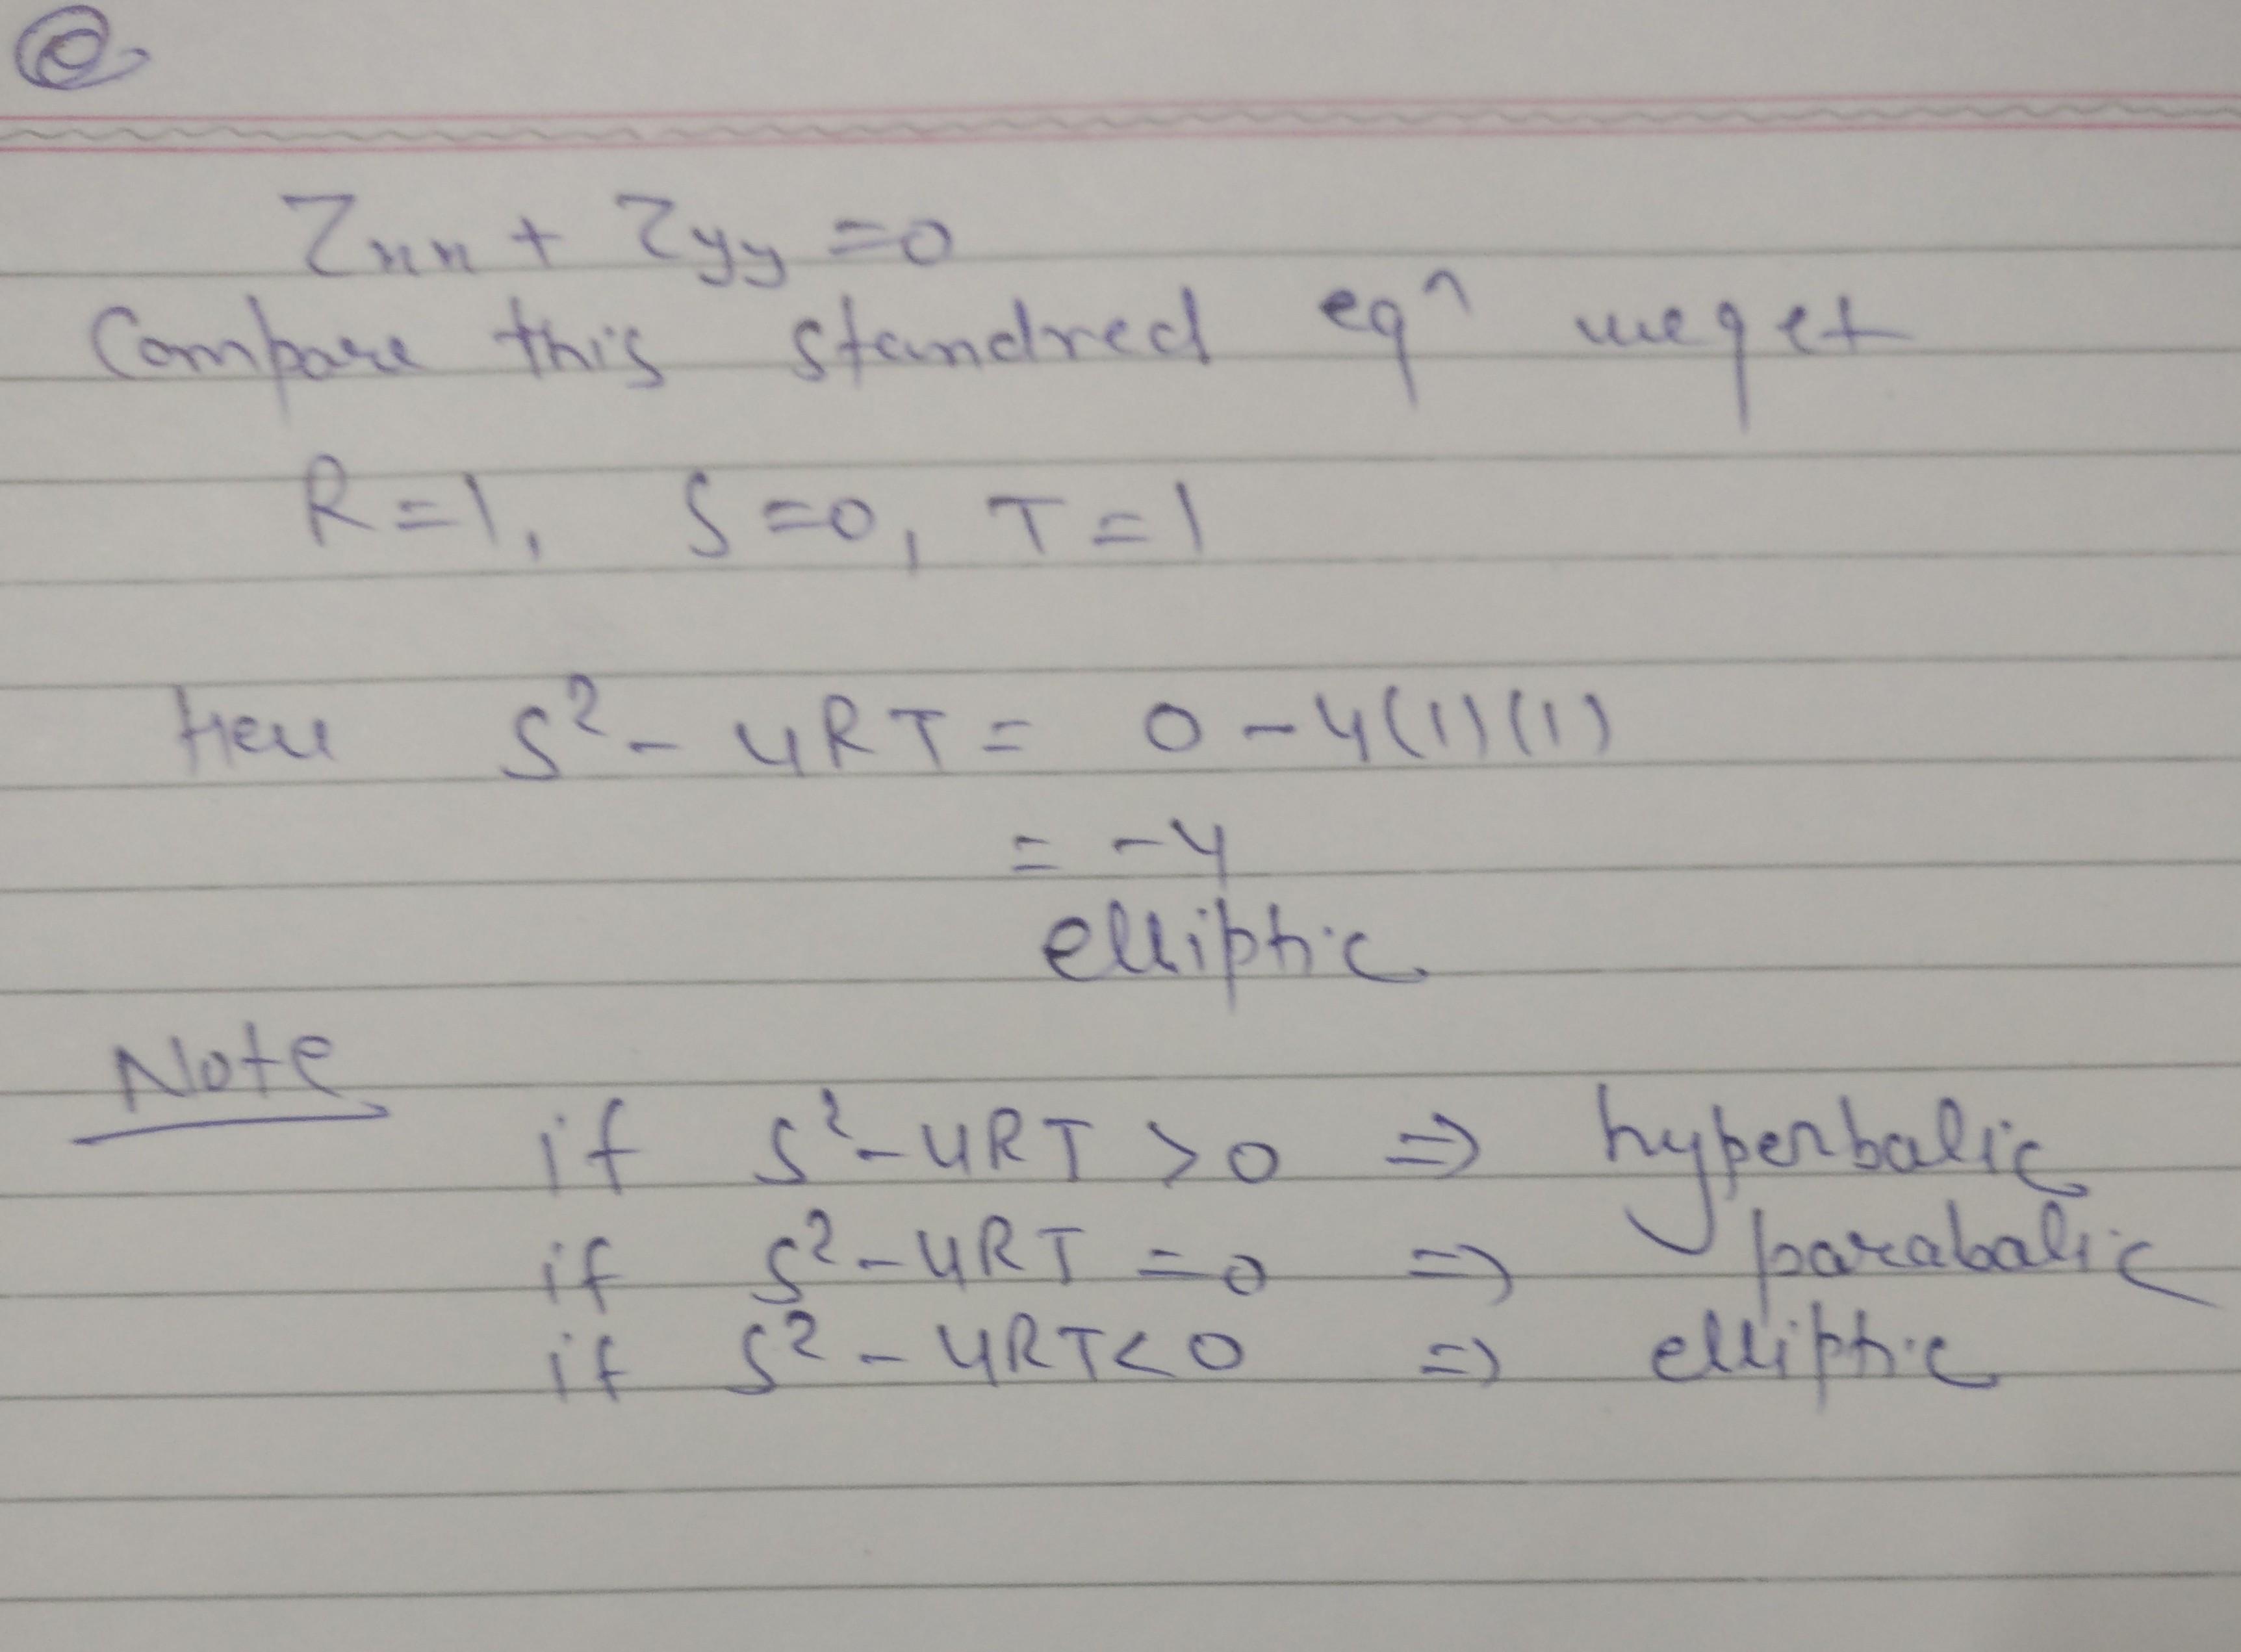 Zxx + Zyy = 0
Compare this standred eqⁿ we get
R = 1, S = 0, T = 1
Here S² - 4RT = 0 - 4(1)(1)
= -4
elliptic
Note
if S² - 4RT > 0 ⇒ hyperbalic
if S² - 4RT = 0 ⇒ parabalic
if S² - 4RT < 0 ⇒ elliptic